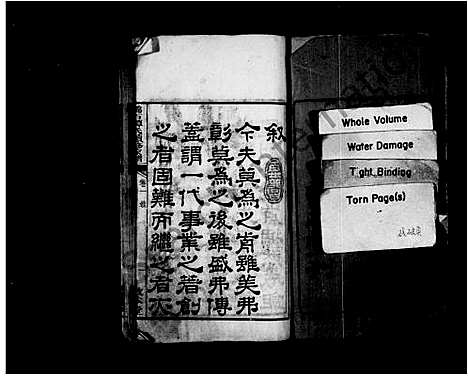 叙
今夫莫為之前雖美弗
彰莫為之後雖盛弗傳
蓋謂一代事業之著創
之者固難而繼之者亦
Whole Volume
Water Damage
Tight Binding
Torn Page(s)